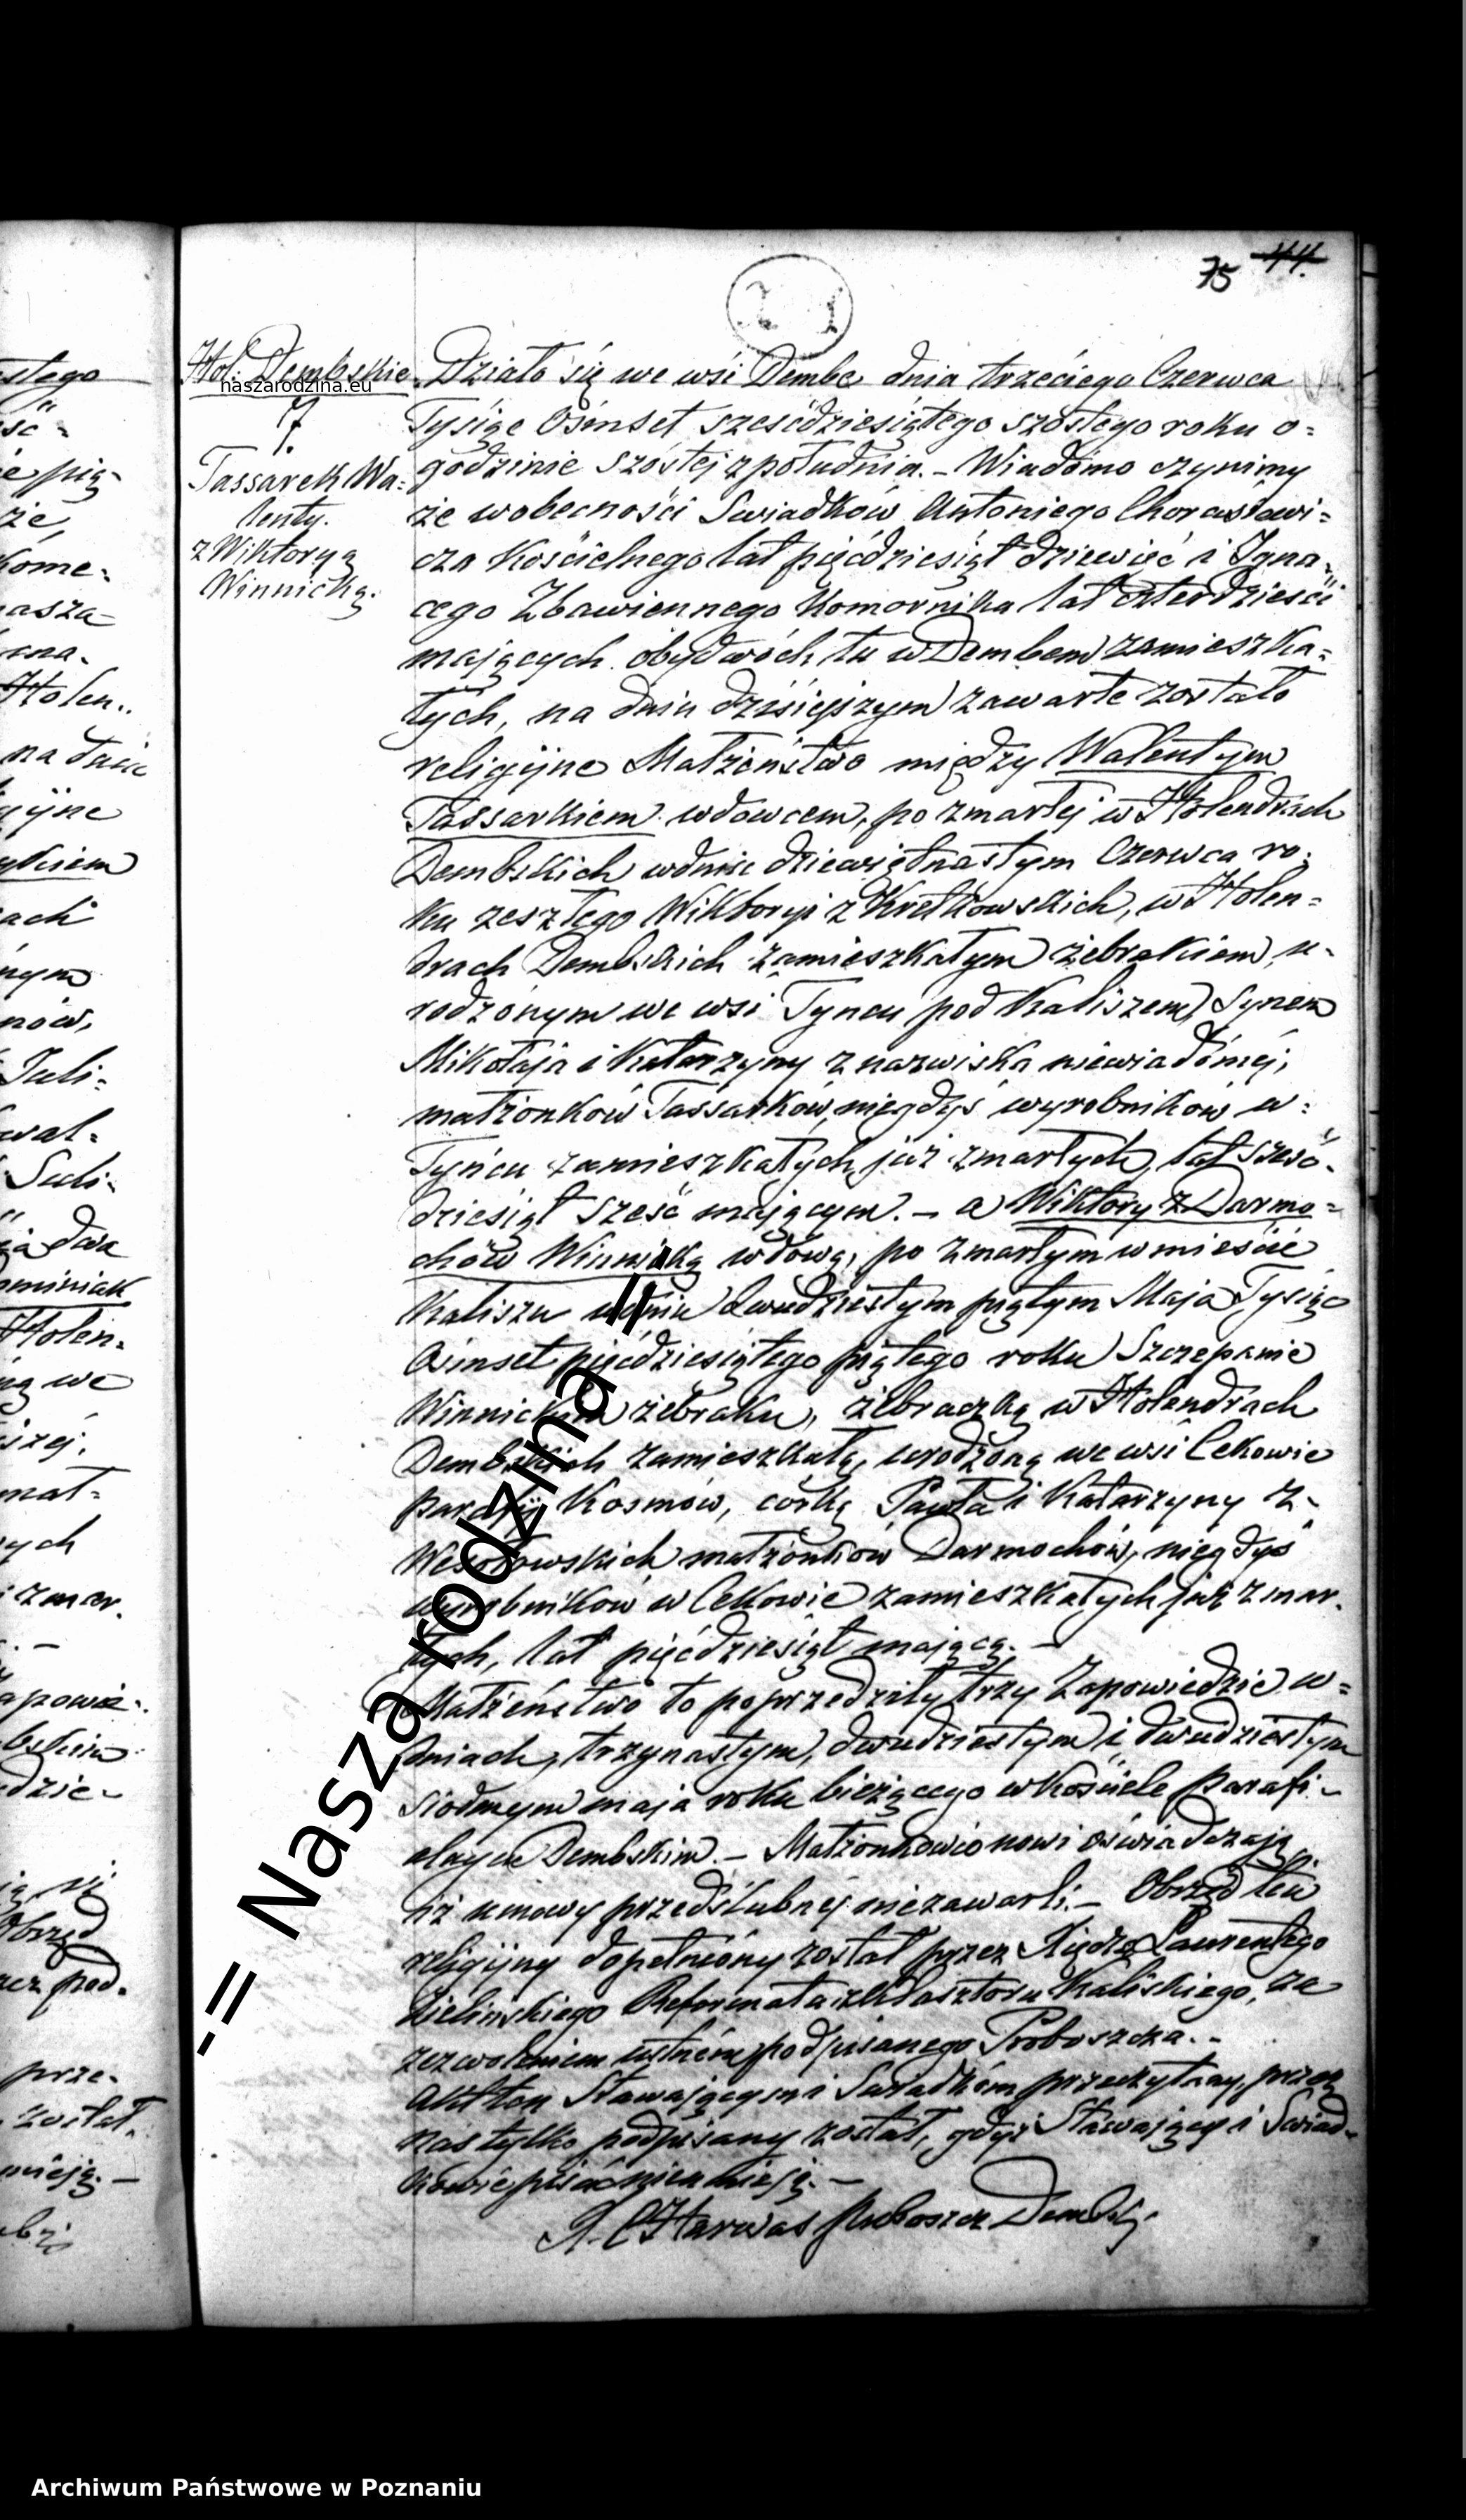 75 44.
Hol: Dembskie
naszarodzina.eu
7.
Tassarek Wa=
lenty.
z Wiktoryą
Winnicką.
Działo się we wsi Dembe dnia trzeciego Czerwca
Tysiąc Ośmset sześćdziesiątego szóstego roku o=
godzinie szóstej z południa. – Wiadomo czynimy
że wobecności Swiadków Antoniego
cza Kościelnego lat pięćdziesiąt dziewięć i Igna=
cego Zbawiennego Komornika lat czterdzieści
mających obydwóch tu w Dembem zamieszka=
łych, na dniu dzisiejszym zawarte zostało
religijne Małżeństwo między Walentym
Tassarkiem wdowcem, po zmarłej w Holendrach
Dembskich wdniu dziewiętnastym Czerwca ro=
ku zeszłego Wiktoryi z Kretkowskich, w Holen=
drach Dembskich zamieszkałym żebrakiem, u=
rodzonym we wsi Tyncu pod Kaliszem, Synem
Mikołaja i Katarzyny z nazwiska niewiadomej,
małżonków Tassarków, niegdyś wyrobników w=
Tyńcu zamieszkałych, już zmarłych, lat sześć=
dziesiąt sześć mającym. – a Wiktoryą z Darmo=
chów Winnicką wdową, po zmarłym w mieście
Kaliszu wdniu dwudziestym piątym Maja Tysiąc
Ośmset pięćdziesiątego piątego roku Szczepanie
Winnickim żebraku, żebraczką w Holendrach
Dembskich zamieszkałą, urodzoną we wsi Cekowie
parafij Kosmów, córką Pawła i Katarzyny z=
Wesołowskich małżonków Darmochów, niegdyś
wyrobników w Cekowie zamieszkałych już zmar=
łych, lat pięćdziesiąt mającą. –
Małżeństwo to poprzedziły trzy Zapowiedzie w=
dniach, trzynastym, dwudziestym i dwudziestym
siódmym maja roku bieżącego w Kościele parafi=
alnym Dembskim. – Małżonkowie nowi oświadczają
iż umowy przedślubnej niezawarli. – Obrzęd ten
religijny dopełniony został przez Księdza Laurentego
Zielinskiego Reformata z Klasztoru Kaliskiego, za
zezwoleniem ustnem podpisanego Proboszcza. –
Akt ten Stawającym i Swiadkom przeczytany, przez
nas tylko podpisany został, gdyż Stawający i Swiad=
kowie pisać nieumieją. –
Proboszcz Dembski
-= Nasza rodzina =-
Archiwum Państwowe w Poznaniu